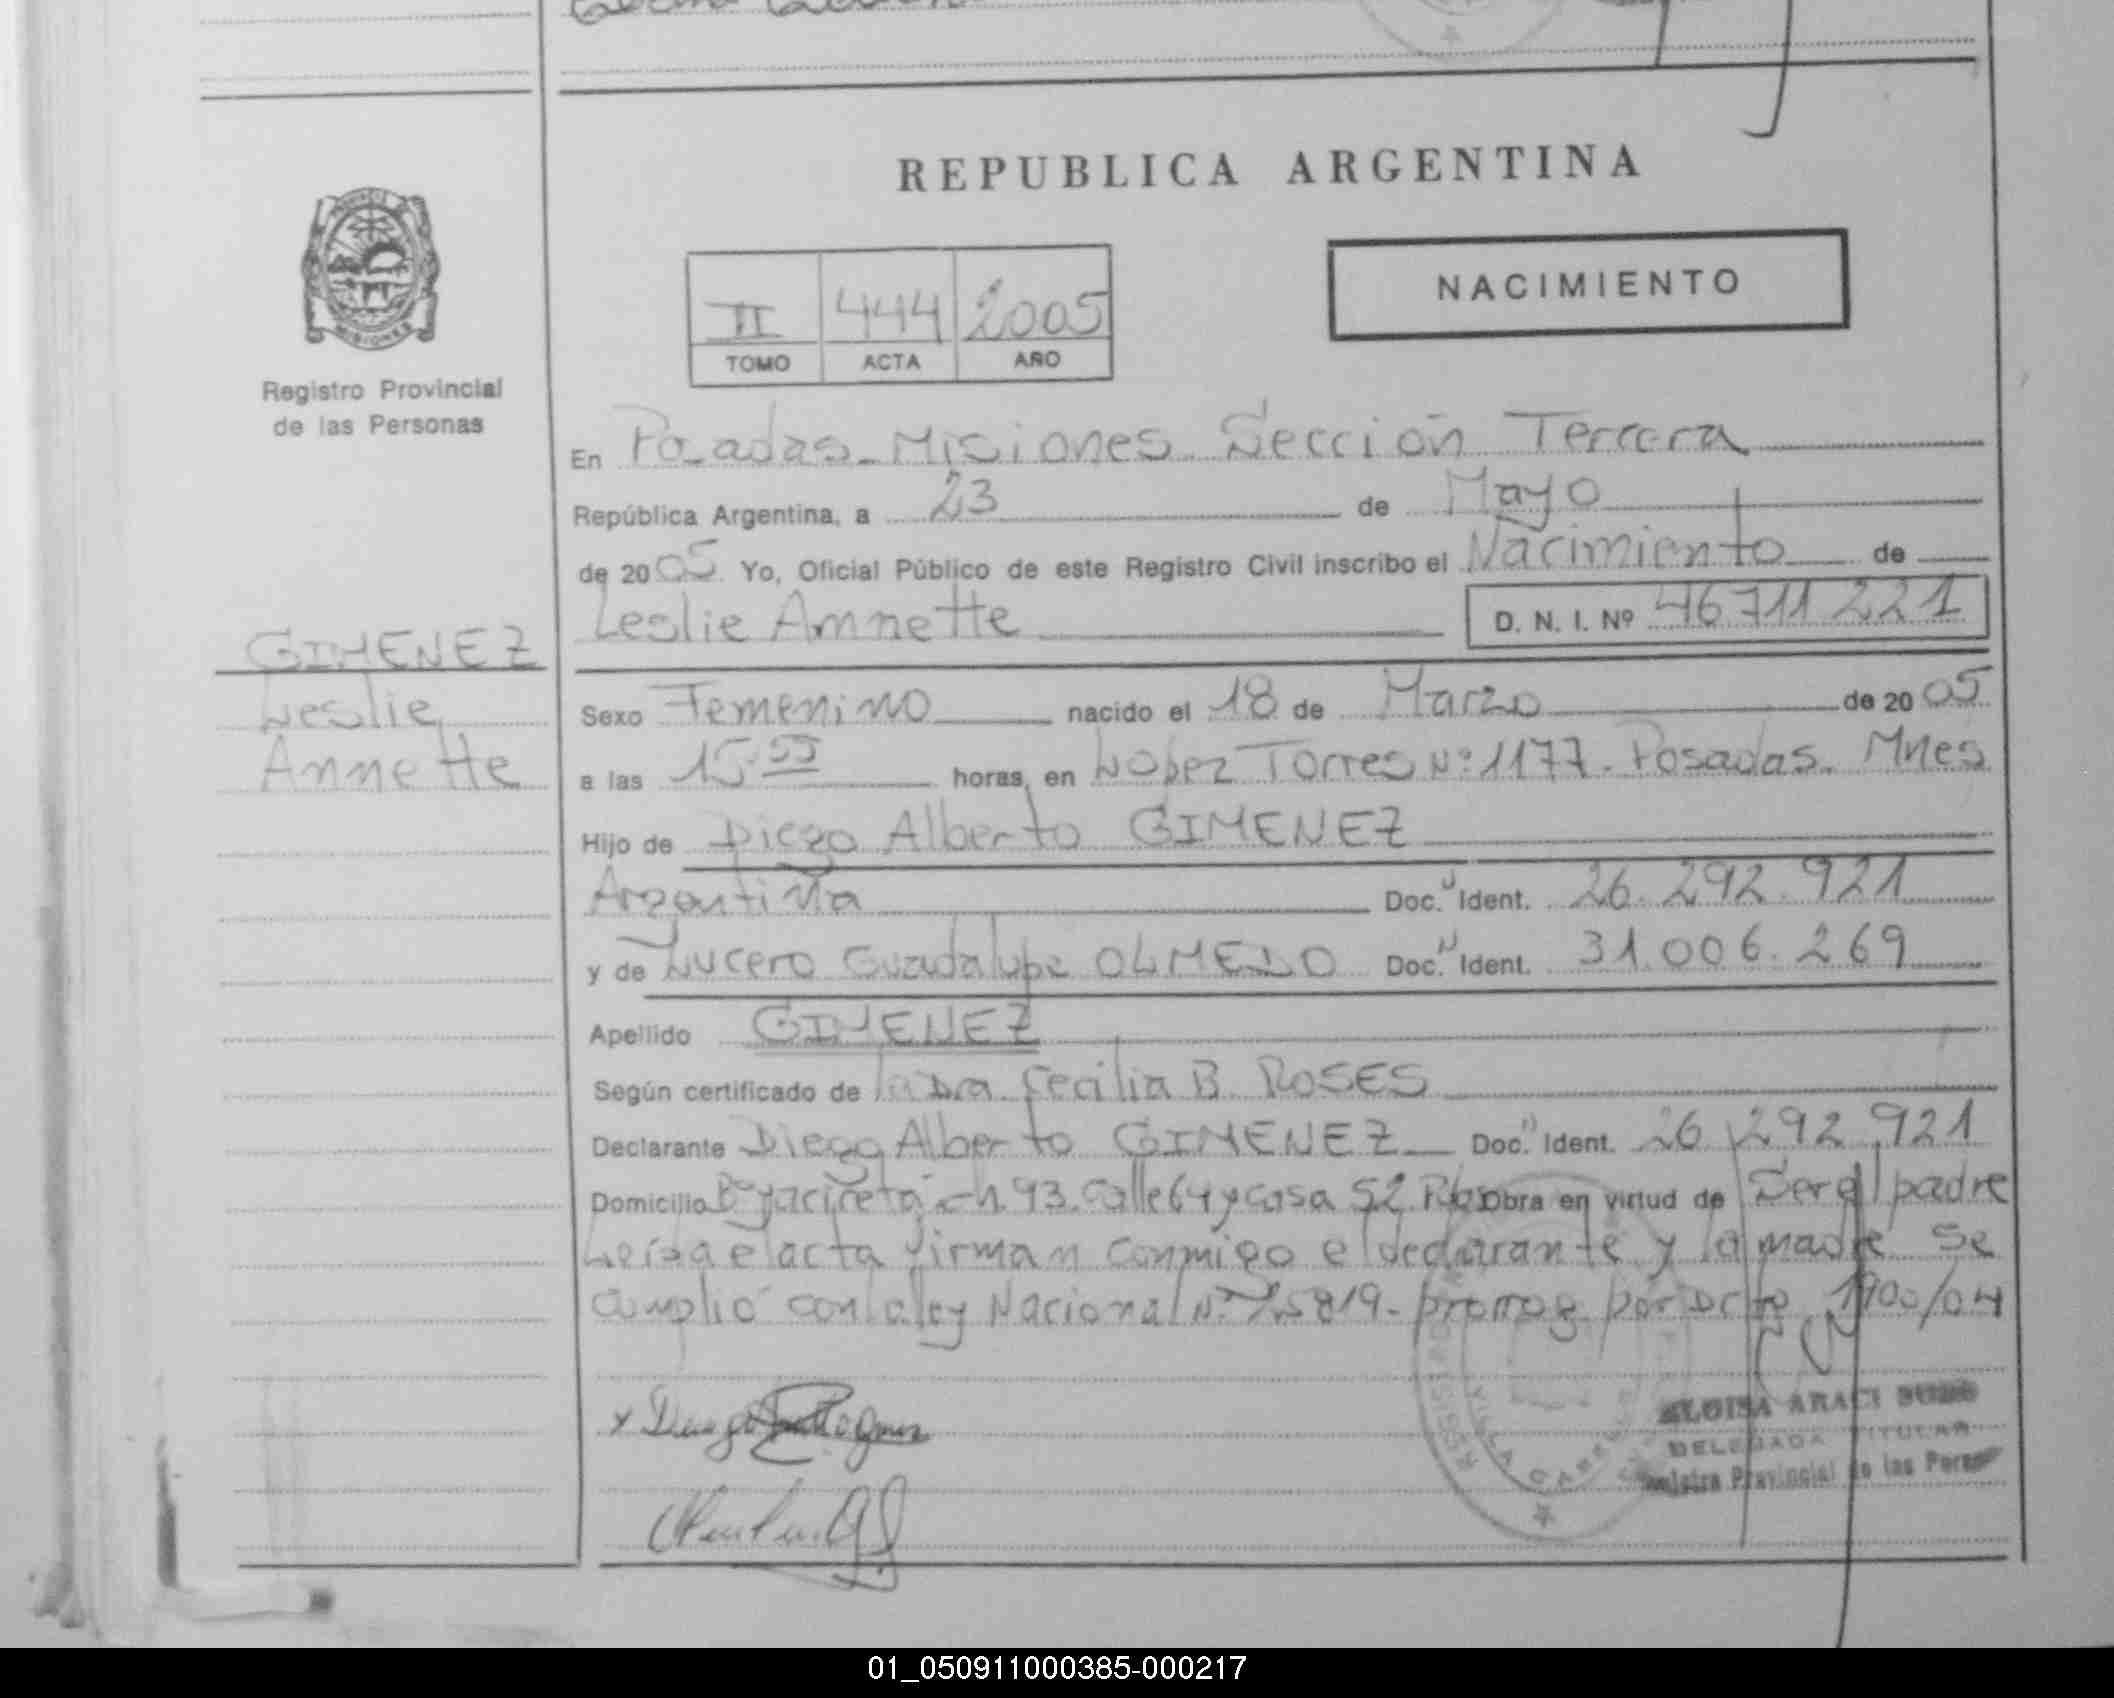 REPUBLICA ARGENTINA
PROVINCIA DE
MISIONES
Registro Provincial
de las Personas
II 444 2005
TOMO ACTA AÑO
NACIMIENTO
En Posadas - Misiones Sección Tercera
República Argentina, a 23 de Mayo
de 2005. Yo, Oficial Público de este Registro Civil inscribo el Nacimiento de
Leslie Annette D. N. I. Nº 46711221
GIMENEZ
Leslie
Annette
Sexo Femenino nacido el 18 de Marzo de 2005
a las 15:55 horas, en Lopez Torres Nº 1177. Posadas. Mnes
Hijo de Diego Alberto GIMENEZ
Argentina Doc. Ident. 26.292.921
y de Lucero Guadalupe OLMEDO Doc. Ident. 31.006.269
Apellido GIMENEZ
Según certificado de la Dra. Cecilia B. ROSES
Declarante Diego Alberto GIMENEZ Doc. Ident. 26.292.921
Domicilio Bº Yacireta ch. 93. Calle 64 y casa 52. Obra en virtud de Ser el padre
Leída el acta firman conmigo el declarante y la madre Se
cumplió con la ley Nacional Nº 25819- prorrog por Dcto 1900/04
VILLA CABELLO
ELOISA ARACI
DELEGADA TITULAR
Registro Provincial de las Personas
01_050911000385-000217